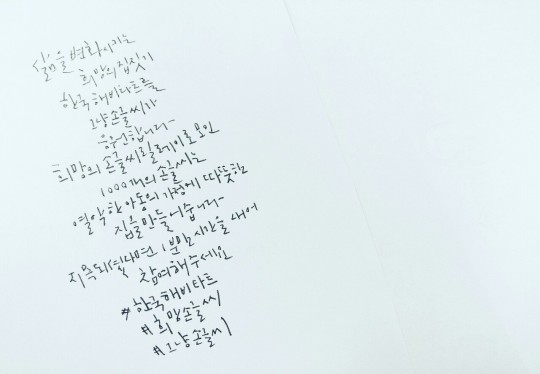 삶을 변화시키는
희망의 집짓기
한국해비타트를
그냥손글씨가
응원합니다~
희망의 손글씨릴레이로 모인
1000개의 손글씨는
열악한 아동의 가정에 따뜻한
집을 만들어줍니다~
지목되셨다면 1분만 시간을 내어
참여해주세요
#한국해비타트
#희망손글씨
#그냥손글씨